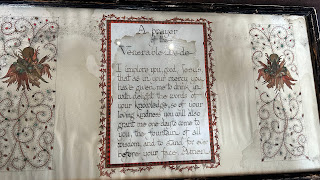 A prayer
of the
Venerable Bede
I implore you, good Jesus
that as in your mercy you
have given me to drink in
with delight the words of
your knowledge, so of your
loving kindness you will also
grant me one day to come to
you, the fountain of all
wisdom, and to stand for ever
before your face. Amen.